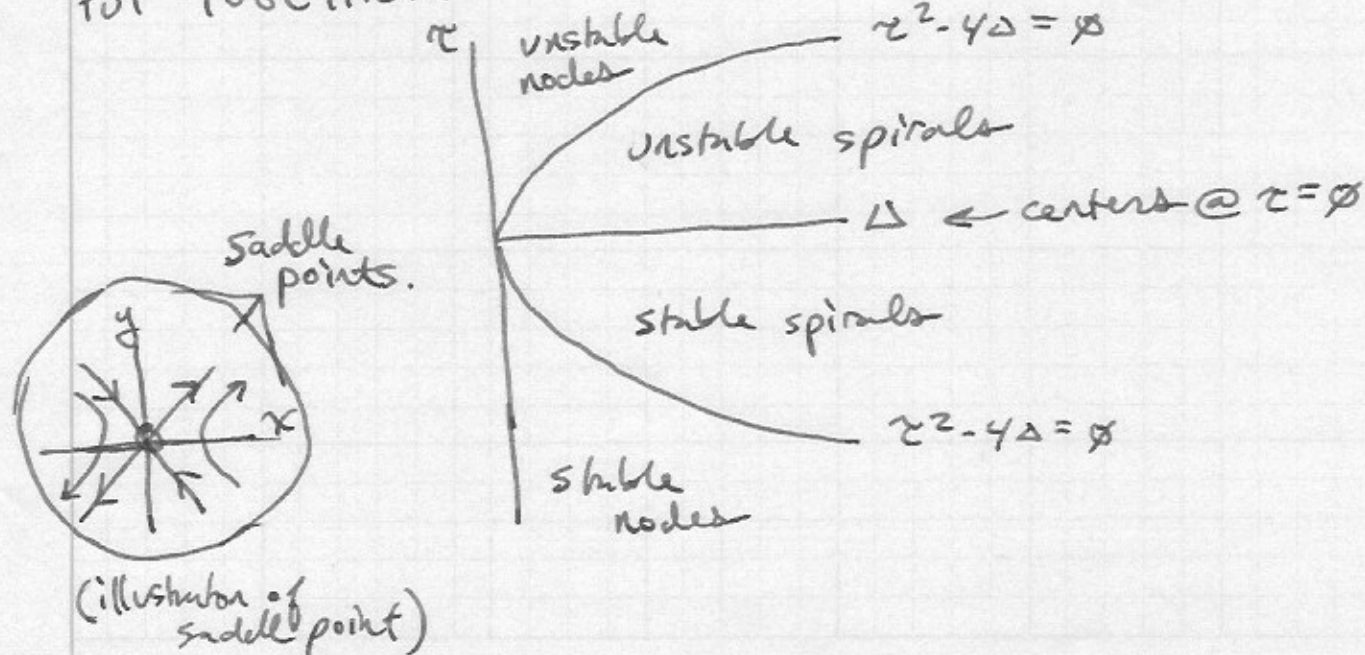 for
τ
unstable
nodes
τ²-4Δ = ∅
unstable spirals
Δ ← centers @ τ=∅
saddle
points.
y
x
stable spirals
τ²-4Δ = ∅
stable
nodes
(illustration of
saddle point)